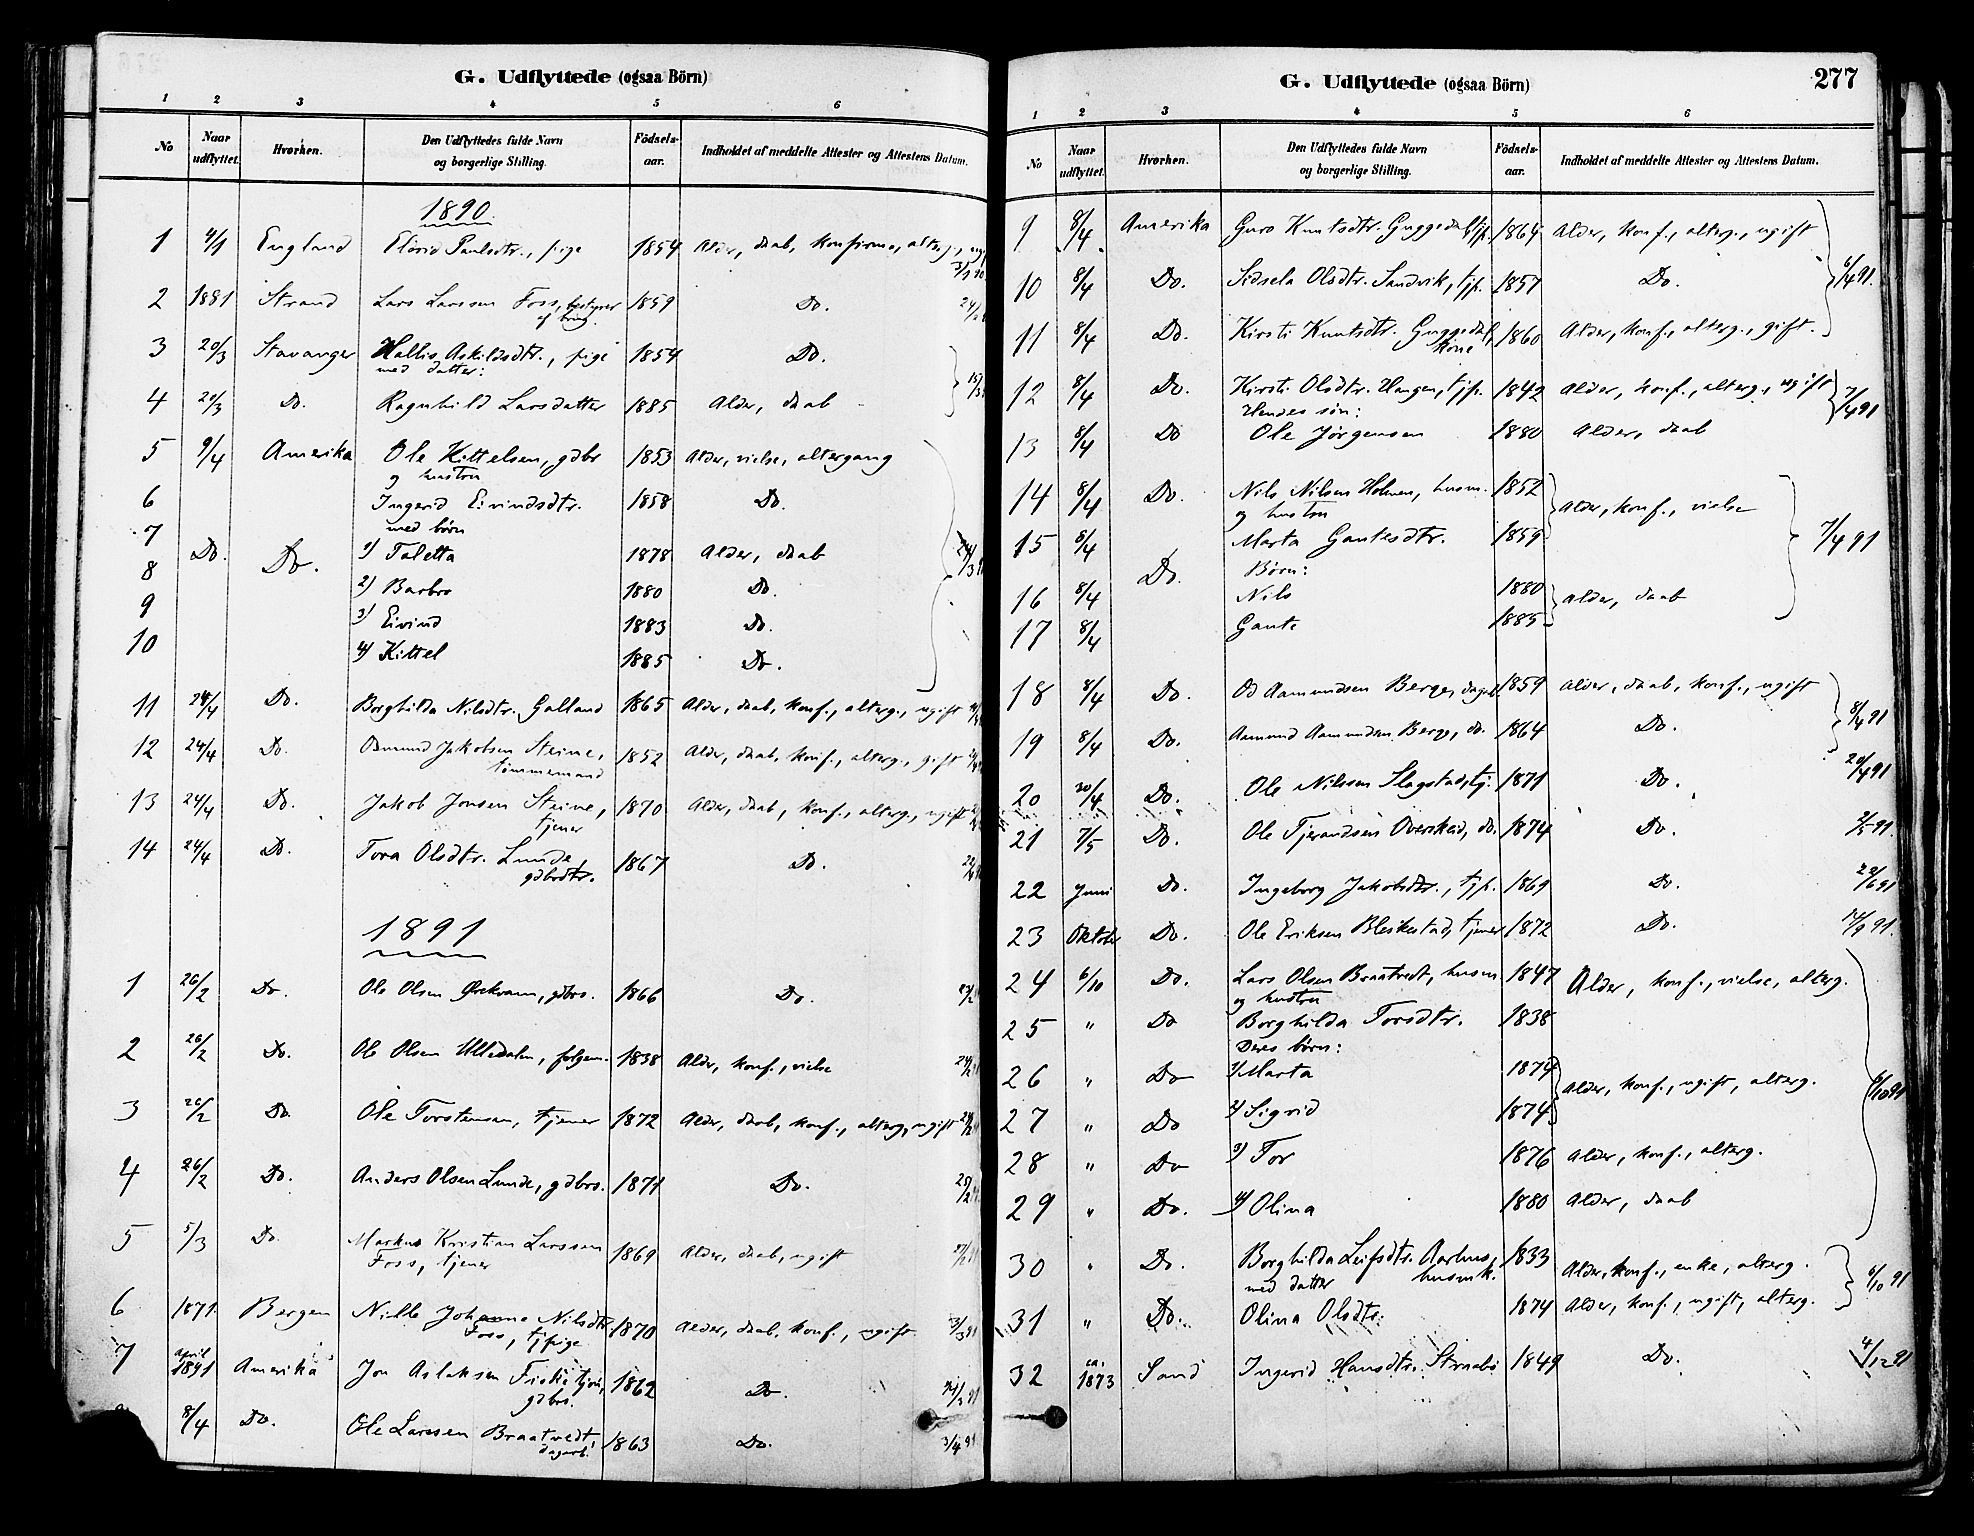 G. Udflyttede (ogsaa Börn)
1 2 3 4 5 6
No Naar udflyttet. Hvorhen. Den Udflyttedes fulde Navn og borgerlige Stilling. Födsels-aar. Indholdet af meddelte Attester og Attestens Datum.
1890.
1 4/1 England Paulsdtr., pige 1854 Alder, daab, konfirma, alterg.,
2 1881 Strand Lars Larssen Foss, bestyrer 1859 Do.
af brug.
3 20/3 Stavanger Hallis Askildsdtr., pige 1854 Do.
med datter:
4 20/3 Do. Ragnhild Larsdatter 1885 Alder, daab
5 9/4 Amerika Ole Kittelsen, gdbr 1853 Alder, vielse, altergang
og hustru
6 Ingerid Eivindsdtr. 1858 Do.
med børn
7 Do. Do. 1) Taletta 1878 Alder, daab
8 2) Barbro 1880 Do.
9 3) Eivind 1883 Do.
10 4) Kittel 1885 Do.
11 24/4 Do. Borghilda Nilsdtr. Galland 1865 Alder, daab, konf., alterg., ugift
12 24/4 Do. Osmund Jakobsen Steine, 1852 Alder, daab, konf., alterg., gift
tømmermand
13 24/4 Do. Jakob Jonsen Steine, 1870 Alder, daab, konf., alterg., ugift
tjener
14 24/4 Do. Tora Olsdtr. Lunde, 1867 Do.
gdbrdtr.
1891
1 26/2 Do. Ole Olsen Ørekvam, gdbrs. 1866 Do.
2 26/2 Do. Ole Olsen Ulledalen, 1838 Alder, konf., vielse
3 26/2 Do. Ole Torstensen, tjener 1872 Alder, daab, konf., alterg., ugift
4 26/2 Do. Anders Olsen Lunde, gdbrs. 1871 Do.
5 5/3 Do. Markus Kristian Larssen 1869 Alder, daab, ugift
Foss, tjener
6 1871 Bergen Nille Johanna Nilsdtr. 1870 Alder, daab, konf., ugift 3/3 91
Foss, tjpige
7 april 1891 Amerika Jon Aslaksen Fisketjøn, 1862 Do.
gdbrs.
8/4 Do. Ole Larssen Braatvedt, 1863 Do. 3/4 91
dagarb.
G. Udflyttede (ogsaa Börn) 277
1 2 3 4 5 6
No Naar udflyttet. Hvorhen. Den Udflyttedes fulde Navn og borgerlige Stilling. Födsels-aar. Indholdet af meddelte Attester og Attestens Datum.
9 8/4 Amerika Guro Knutsdtr. Guggedal, tjp. 1864 Alder, konf., alterg., ugift
10 8/4 Do. Sidsela Olsdtr. Sandvik, tjp. 1857 Do. 6/4 91.
11 8/4 Do. Kirsti Knutsdtr. Guggedal, 1860 Alder, konf., alterg., gift.
kone
12 8/4 Do. Kirsti Olsdtr. Haugen, tjp. 1842 Alder, konf., alterg., ugift 7/4 91
Hendes søn:
13 8/4 Do Ole Jørgensen 1880 Alder, daab
14 8/4 Do. Nils Nilsen Holmen, husm. 1852 Alder, konf., vielse
og hustru
15 8/4 Marta Gautesdtr. 1859 7/4 91
Do. Børn:
16 8/4 Nils 1880 Alder, daab
17 8/4 Gaute 1885
18 8/4 Do. Od Aamundsen Berge, dagarb 1859 Alder, daab, konf., ugift 8/4 91
19 8/4 Do. Aamund Aamundsen Berge, do. 1864 Do.
20 20/4 Do. Ole Nilssen Slagstad, tj. 1871 Do. 20/4 91
21 7/5 Do. Ole Tjerandsen Overskeid, do. 1874 Do.
22 Juni Do. Ingeborg Jakobsdtr., tjp. 1869 Do.
23 Oktober Do. Ole Eriksen Bleskestad, tjener 1872 Do. 14/9 91.
24 6/10 Do. Lars Olsen Braatvedt, husm. 1847 Alder, konf., vielse, alterg.
og hustru
25 " Do Borghilda Torsdtr. 1838
Deres børn:
26 " Do 1) Marta 1874 Alder, konf., ugift, alterg. 6/10 91
27 " Do 2) Sigrid 1874
28 " Do 3) Tor 1876 Alder, konf., alterg.
29 " Do. 4) Olina 1880 Alder, daab
30 " Do. Borghilda Leifsdtr. Aarhus, 1833 Alder, konf., enke, alterg. 6/10 91
med datter husmk.
31 " Do. Olina Olsdtr. 1874 Alder, konf., ugift, alterg.
32 ca. 1873 Sand Ingerid Hansdtr. Strabø 1849 Do. 4/12 91